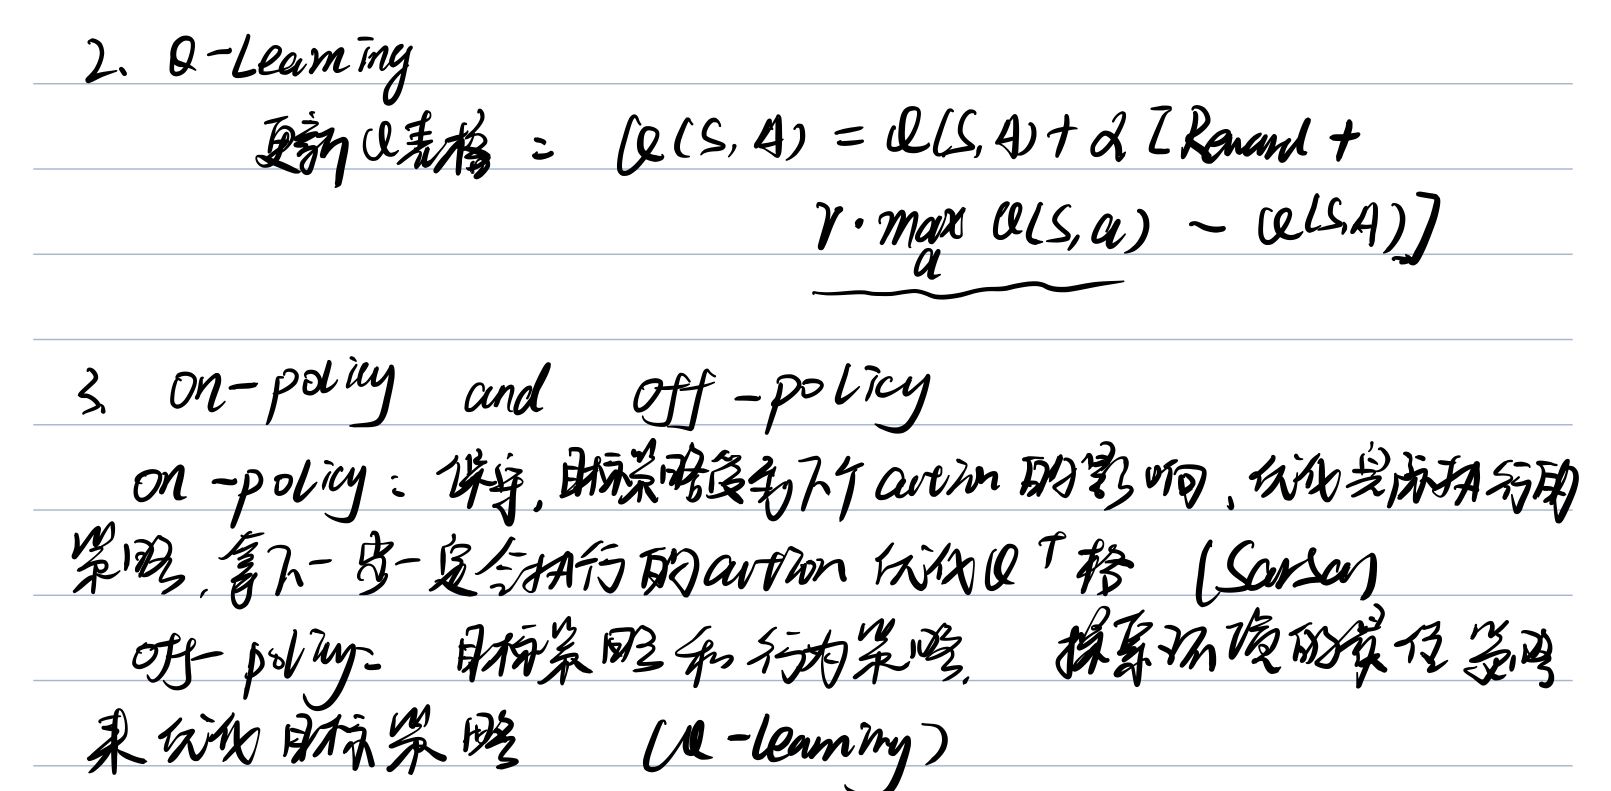 2、Q-Learning
更新Q表格： Q(S,A) = Q(S,A) + α [Reward +
γ·max Q(S,a) - Q(S,A)]
a
3、on-policy and off-policy
on-policy：保守，目标策略受到下个action的影响、优化实际执行的
策略，拿下一步一定会执行的action优化Q格 (Sarsa)
off-policy：目标策略和行为策略，探索环境的最佳策略
来优化目标策略 (Q-learning)